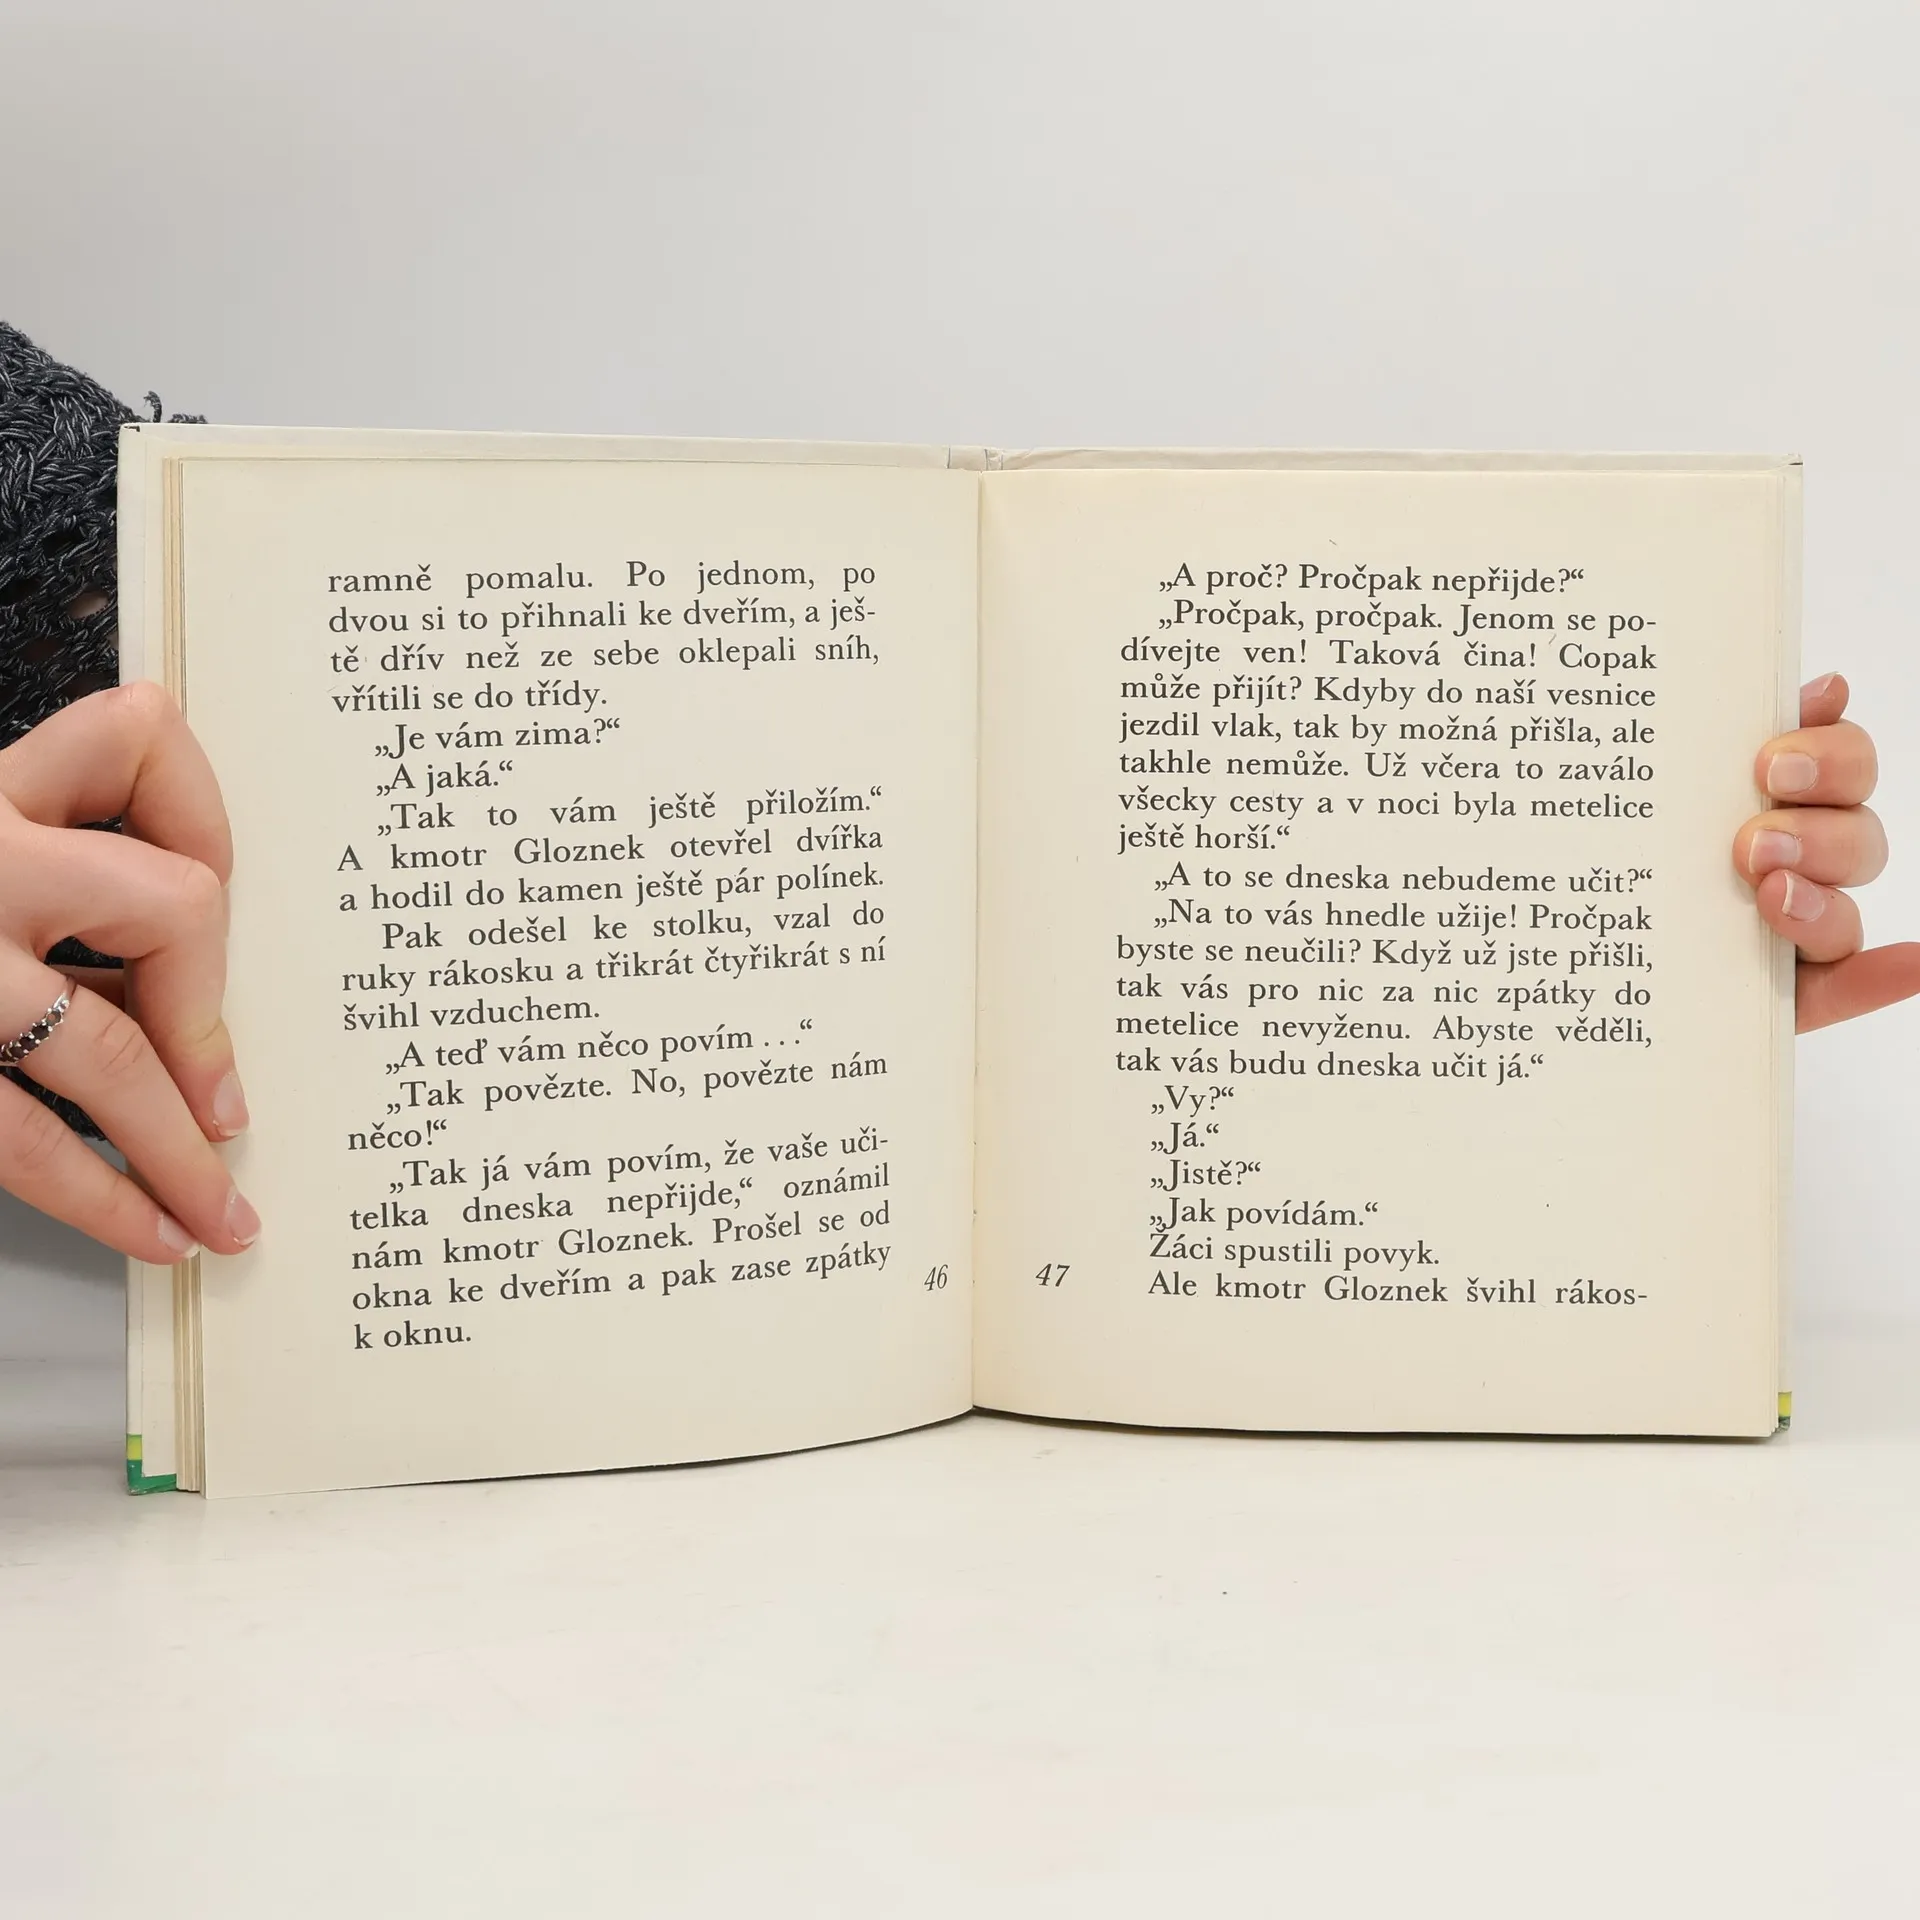 ramně pomalu. Po jednom, po
dvou si to přihnali ke dveřím, a ješ-
tě dřív než ze sebe oklepali sníh,
vřítili se do třídy.
„Je vám zima?“
„A jaká.“
„Tak to vám ještě přiložím.“
A kmotr Gloznek otevřel dvířka
a hodil do kamen ještě pár polínek.
Pak odešel ke stolku, vzal do
ruky rákosku a třikrát čtyřikrát s ní
švihl vzduchem.
„A teď vám něco povím . . .“
„Tak povězte. No, povězte nám
něco!“
„Tak já vám povím, že vaše uči-
telka dneska nepřijde,“ oznámil
nám kmotr Gloznek. Prošel se od
okna ke dveřím a pak zase zpátky
k oknu.
46
„A proč? Pročpak nepřijde?“
„Pročpak, pročpak. Jenom se po-
dívejte ven! Taková čina! Copak
může přijít? Kdyby do naší vesnice
jezdil vlak, tak by možná přišla, ale
takhle nemůže. Už včera to zaválo
všecky cesty a v noci byla metelice
ještě horší.“
„A to se dneska nebudeme učit?“
„Na to vás hnedle užije! Pročpak
byste se neučili? Když už jste přišli,
tak vás pro nic za nic zpátky do
metelice nevyženu. Abyste věděli,
tak vás budu dneska učit já.“
„Vy?“
„Já.“
„Jistě?“
„Jak povídám.“
Žáci spustili povyk.
Ale kmotr Gloznek švihl rákos-
47